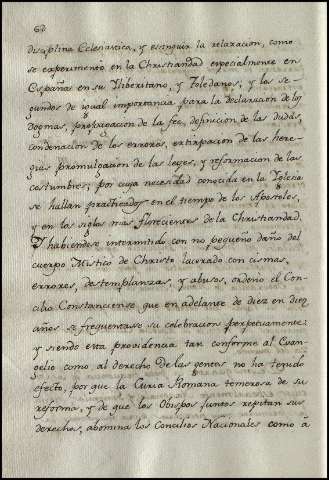 62
disciplina Eclesiastica, y extinguir la relaxacion, como
se experimento en la Christiandad especialmente en
España en su Iliberitano, y Toledanos, y los se-
gundos de igual importancia para la declaracion de los
dogmas, propagacion de la fee, definicion de las dudas,
condenacion de los errores, extirpacion de las here-
gias promulgacion de las leyes, y reformacion de las
costumbres; por cuya necesidad conocida en la Iglesia
se hallan practicados en el tiempo de los Apostoles,
y en los siglos mas florecientes de la Christiandad.
Y habiendose intermitido con no pequeño daño del
cuerpo Mistico de Christo lacerado con cismas,
errores, destemplanzas, y abusos, ordeno el Con-
cilio Constanciense que en adelante de diez en diez
años se frequentasse su celebracion perpetuamente:
y siendo esta providencia tan conforme al Evan-
gelio como al derecho de las gentes no ha tenido
efecto, por que la Curia Romana temerosa de su
reforma, y de que los Obispos juntos repitan sus
derechos, abomina los Concilios Nacionales como à